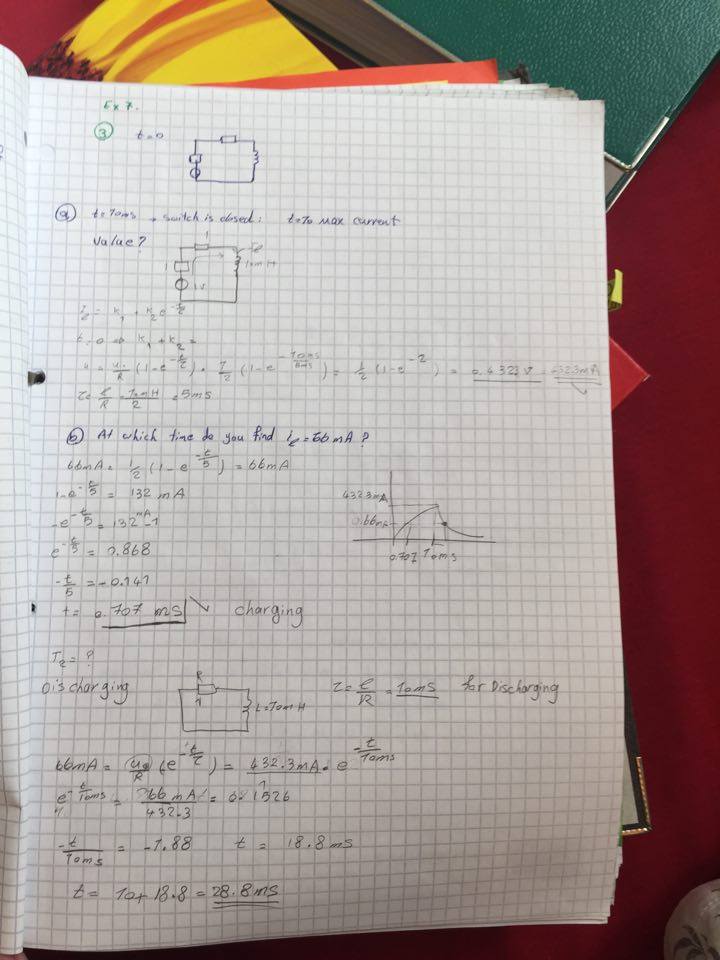 Ex 7.
③ t=0
ⓐ t=10ms → switch is closed: t=10 max current
value?
1
1
1V
10mH
i_L = k₁ + k₂ e^(-t/τ)
t=0 ⇒ k₁ + k₂ =
= u₀/R (1-e^(-t/τ)) = 1/2 (1-e^(-10ms/5ms)) = 1/2 (1-e^(-2)) = 0.4323 V = 432.3mA
τ= L/R = 10mH/2 = 5ms
ⓑ At which time do you find i_L = 66 mA ?
66mA = 1/2 (1-e^(-t/5)) = 66mA
1-e^(-t/5) = 132 mA
-e^(-t/5) = 132 mA -1
e^(-t/5) = 0.868
-t/5 = -0.141
t= 0.707 ms charging
432.3mA
0.66mA
0.707 10ms
T₂ = ?
Discharging
R
1
L=10mH
τ = L/R = 10ms for Discharging
66mA = u₀/R (e^(-t/τ)) = 432.3mA * e^(-t/10ms)
e^(-t/10ms) = 66 mA/432.3 = 0.1526
-t/10ms = -1.88 t = 18.8 ms
t = 10+18.8 = 28.8 ms